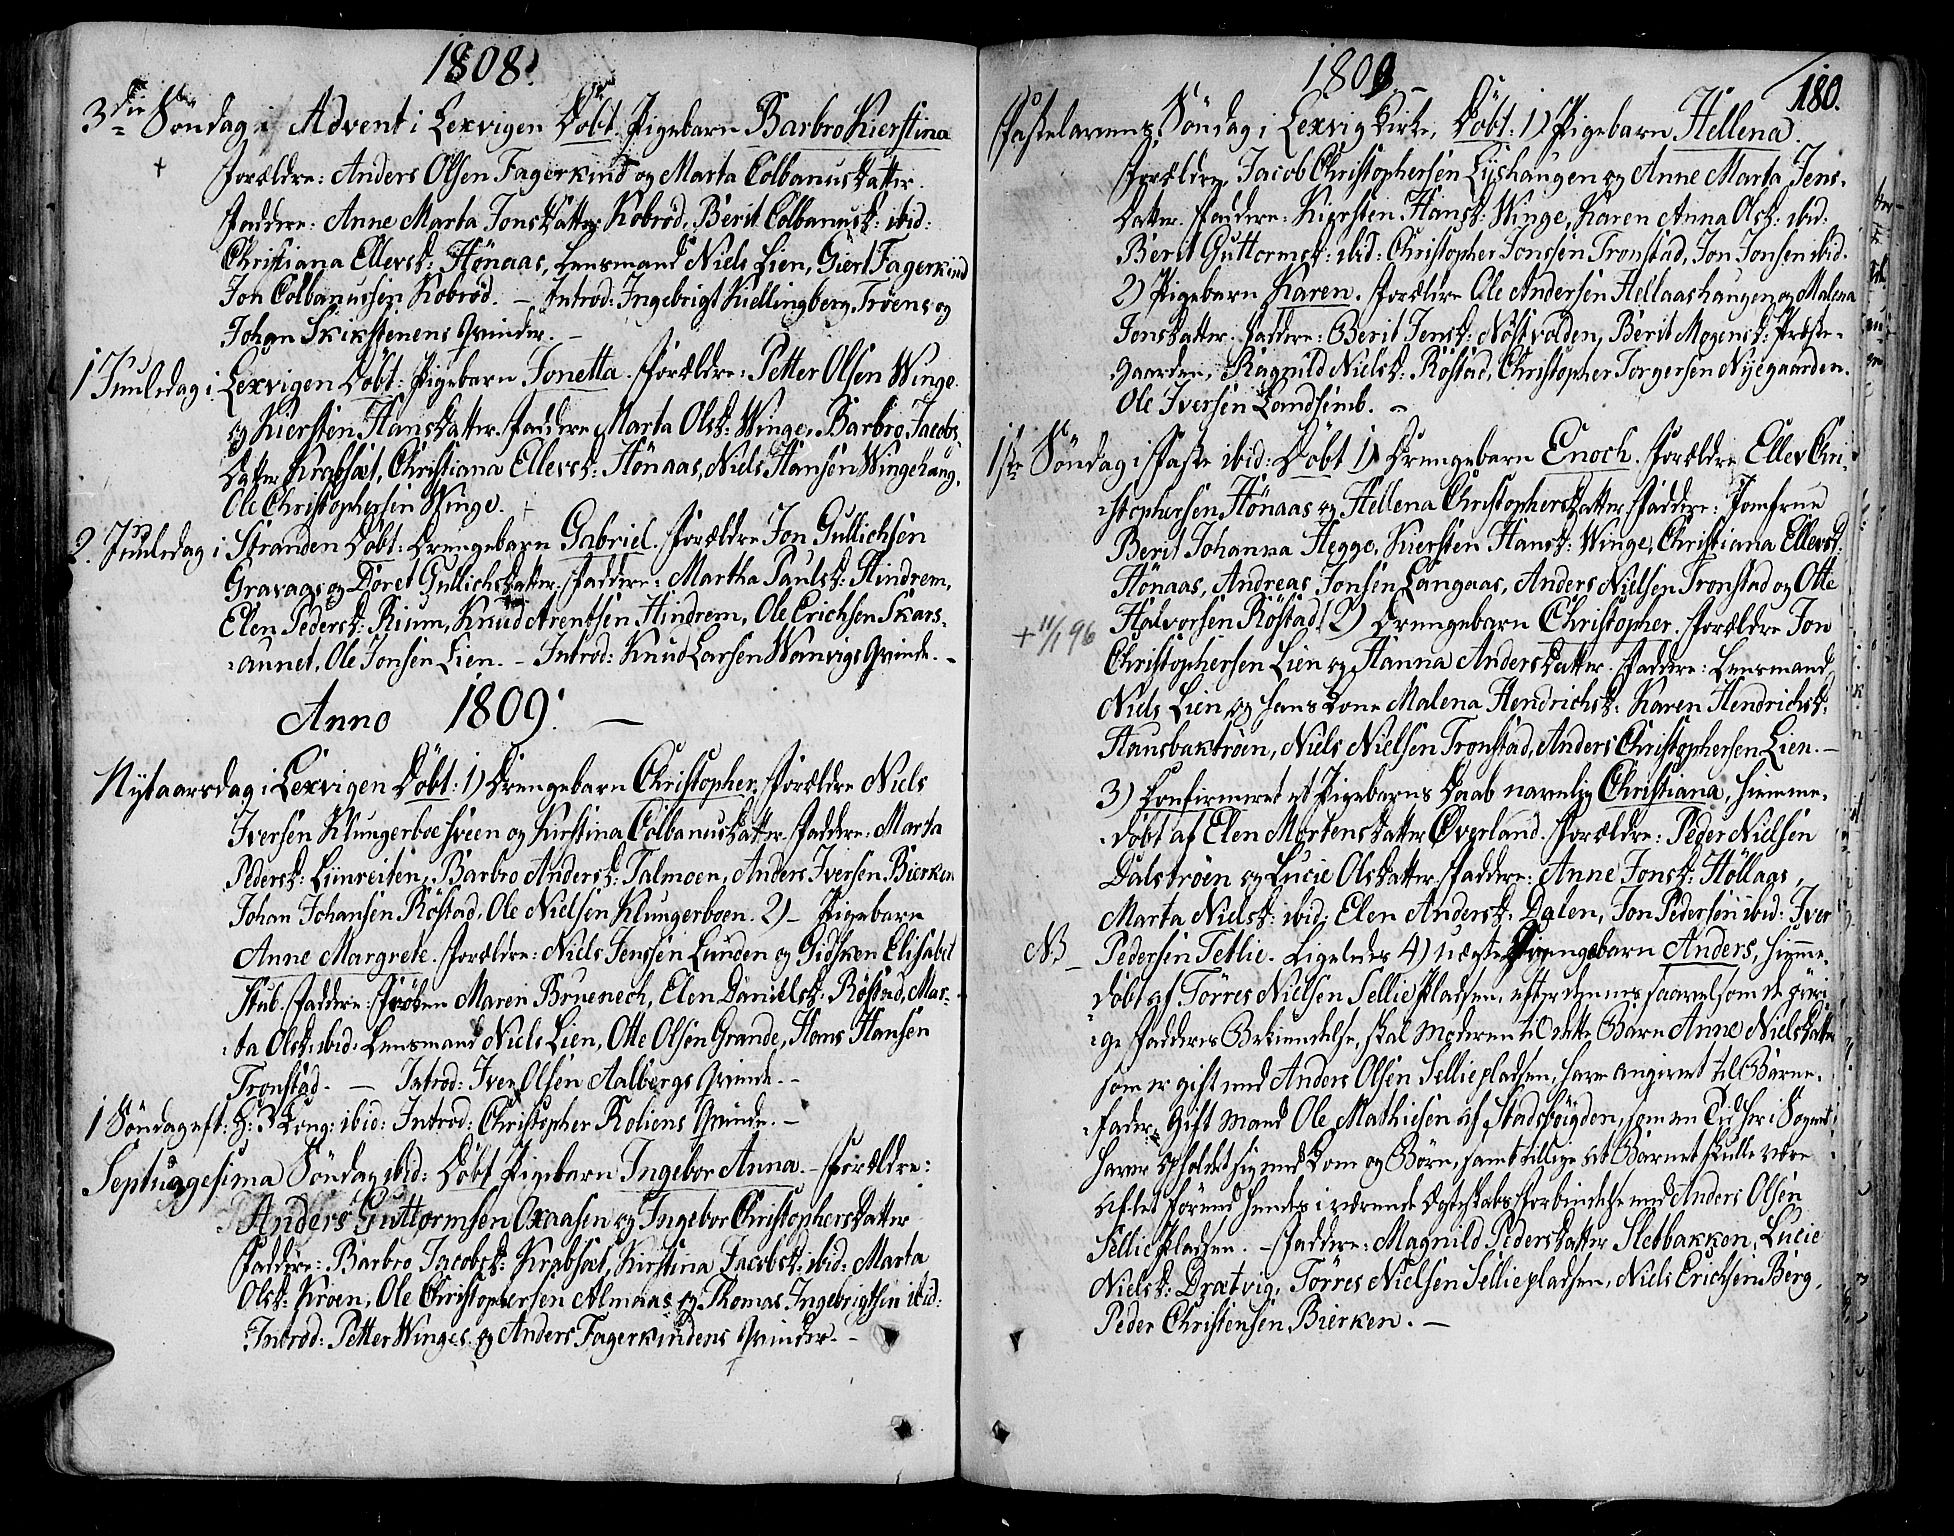 1808.
3die Söndag i Advent i Lexvigen Döbt Pigebarn Barbro Kierstina
+
Forældre: Anders Olsen Fagerkind og Marta Colbanusdatter.
Faddere: Anne Marta Jonsdatter Kobröd, Berit Colbanusd: ibid:
Christiana Ellevsd: Hönaas, Lensmand Niels Lien, Giert Fagerkind
Jon Colbanussen Kobröd. – Introd: Ingebrigt Kiellingberg, Trøens og
Johan Skikstenens Qvinder. –
1 Juuledag i Lexvigen Döbt: Pigebarn Jonetta. Forældre: Petter Olsen Winge
og Kiersten Hansdatter. Faddere Marta Olsd: Winge, Barbro Jacobs-
datter Krabsæt, Christiana Ellevsd: Hönaas, Niels Hansen Wingehaug,
Ole Christophersen Winge.
2. Juuledag i Stranden Döbt: Drengebarn Gabriel. Forældre Jon Gullichsen
Gravags og Döret Gullichsdatter. Faddere: Martha Paulsd: Hindrem,
Elen Pedersd: Rium, Knud Arentsen Hindrem, Ole Erichsen Skars-
aunet, Ole Jonsen Lien. – Introd: Knud Larsen Wanvigs Qvinde. –
Anno 1809. –
Nytaarsdag i Lexvigen Döbt: 1) Drengebarn Christopher. Forældre Niels
Iversen Klungerboe sveen og Kirstina Colbanusdatter. Faddere: Marta
Pedersd: Limreiten, Barbro Andersd: Talmoen, Anders Iversen Bierken
Johan Johansen Röstad, Ole Nielsen Klungerboen. 2) – Pigebarn
Anne Margrete. Forældre: Niels Jenssen Lunden og Gidsken Elisabet
Stub. Faddere: Maren Bruenech, Elen Danielsd: Röstad, Mar-
ta Olsd: ibid: Lensmand Niels Lien, Otte Olsen Grande, Hans Hansen
Tronstad. – Introd: Iver Olsen Aalbergs Qvinde. –
1 Söndag eft: H: 3 Kong: ibid: Introd: Christopher Roliens Qvinde. –
Septuagesima Söndag ibid: Döbt Pigebarn Ingebor Anna. – Forældre:
Anders Guttormsen Oxaasen og Ingebor Christophersdatter
Faddere: Barbro Jacobsd: Krabsæt, Kirstina Jacobsd: ibid: Marta
Olsd: Kroen, Ole Christophersen Almaas og Thomas Ingebrigtsen ibid:
Introd: Petter Winges og Anders Fagerkindens Qvinder. –
1809 –
180.
Fastelavens Söndag i Lexvig Kirke, Döbt: 1) Pigebarn Hellena.
Forældre, Jacob Christophersen Lyshaugen og Anne Marta Jens-
datter. Faddere: Kiersten Hansd: Winge, Karen Anna Olsd: ibid:
Berit Guttormsd: ibid: Christopher Jonssen Tronstad, Jon Jonsen ibid.
2) Pigebarn Karen. Forældre Ole Andersen Hellaashaugen og Malena
Jonsdatter. Faddere: Berit Jensd: Nöstvolden, Berit Mogensd: Præste-
gaarden, Ragnild Nielsd: Röstad, Christopher Jörgersen Nyegaarden.
Ole Iversen Landsemb. –
1ste Söndag i Faste ibid: Döbt 1) Drengebarn Enoch. Forældre Ellev Chri-
stophersen Hönaas og Hellena Christophersdatter. Faddere: Jomfrue
Berit Johanna Hegge, Kiersten Hansd: Winge, Christiana Ellevsd:
Hönaas, Andreas Jonsen Langaas, Anders Nielsen Tronstad og Otte
Halvorsen Röstad. 2) Drengebarn Christopher. Forældre Jon
+ 11/1 96
Christophersen Lien og Hanna Andersdatter. Faddere: Lensmand
Niels Lien og hans Kone Malena Hendrichsd: Karen Hendrichsd:
Hausbaktröen, Niels Nielsen Tronstad, Anders Christophersen Lien. –
3) Confirmeret et Pigebarns Daab navnlig Christiana, hiemme-
döbt af Elen Mortensdatter Överland. Forældre: Peder Nielsen
Dalströen og Lucie Olsdatter. Faddere: Anne Jonsd: Höllaas,
Marta Nielsd: ibid: Elen Andersd: Dalen, Jon Pedersen ibid: Iver
NB – Pedersen Tetlie. Ligeledes 4) uægte Drengebarn Anders, hiemme-
döbt af Törres Nielsen Selliepladsen, efter dennes saavelsom de övri-
ge Fadderes Bekiendelse, skal Moderen til dette Barn Anne Nielsdatter
som er gift med Anders Olsen Selliepladsen, have angivet til Barne-
fader, Gift Mand Ole Mathiesen af Stadsböigden, som en Tid her i Sognet
haver opholdet sig med Kone og Börn, samt tillige at Barnet skulle være
avlet förend hendes i værende Ægteskabs Forbindelse med Anders Olsen
Selliepladsen. – Faddere: Magnild Pedersdatter Sletbakken, Lucie
Nielsd: Drætvig, Törres Nielsen Selliepladsen, Niels Erichsen Berg,
Peder Christensen Bierken. –